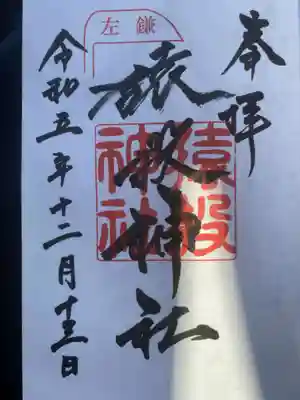 奉拝
左鎌
猿投神社
猿投神社
令和五年十二月十三日